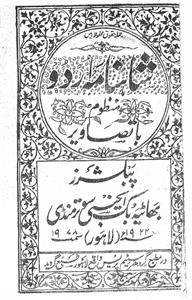 شاہنامہ اردو
منظوم
باتصاویر
پبلشرز
بھاٹیہ بک ایجنسی سوتر منڈی
۱۹۲۲ء (لاہور) سمت ۱۹۷۸